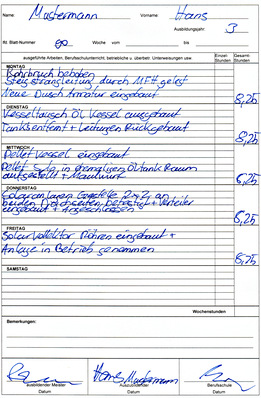 Name Mustermann Vorname Hans
Ausbildungsjahr: 3
Rt. Blatt-Nummer 90 Woche vom bis
ausgeführte Arbeiten, Berufsschulunterricht, betriebliche u. überbetr. Unterweisungen usw. Einzel-Stunden Gesamt-Stunden
MONTAG
Rohrbruch behoben
Steigstrangleitung durch MFH gelegt
Neue Dusch Armatur eingebaut 8,25
DIENSTAG
Kesseltausch Öl Kessel ausgebaut
Tanks entfernt + Leitungen Rückgebaut 8,25
MITTWOCH
Pellet Kessel eingebaut
Pellet Silo in ehemaligen Öltank Raum
aufgestellt + Maulwurf 8,25
DONNERSTAG
Solaranlagen Gestelle 2x2, an
beiden Dachseiten befestigt + Verteiler
eingebaut + Angeschlossen 8,25
FREITAG
Solar Kollektor Röhren eingebaut +
Anlage in Betrieb genommen 8,25
SAMSTAG
Wochenstunden
Bemerkungen:
Hans Mustermann
ausbildender Meister Auszubildender Berufsschule
Datum Datum Datum